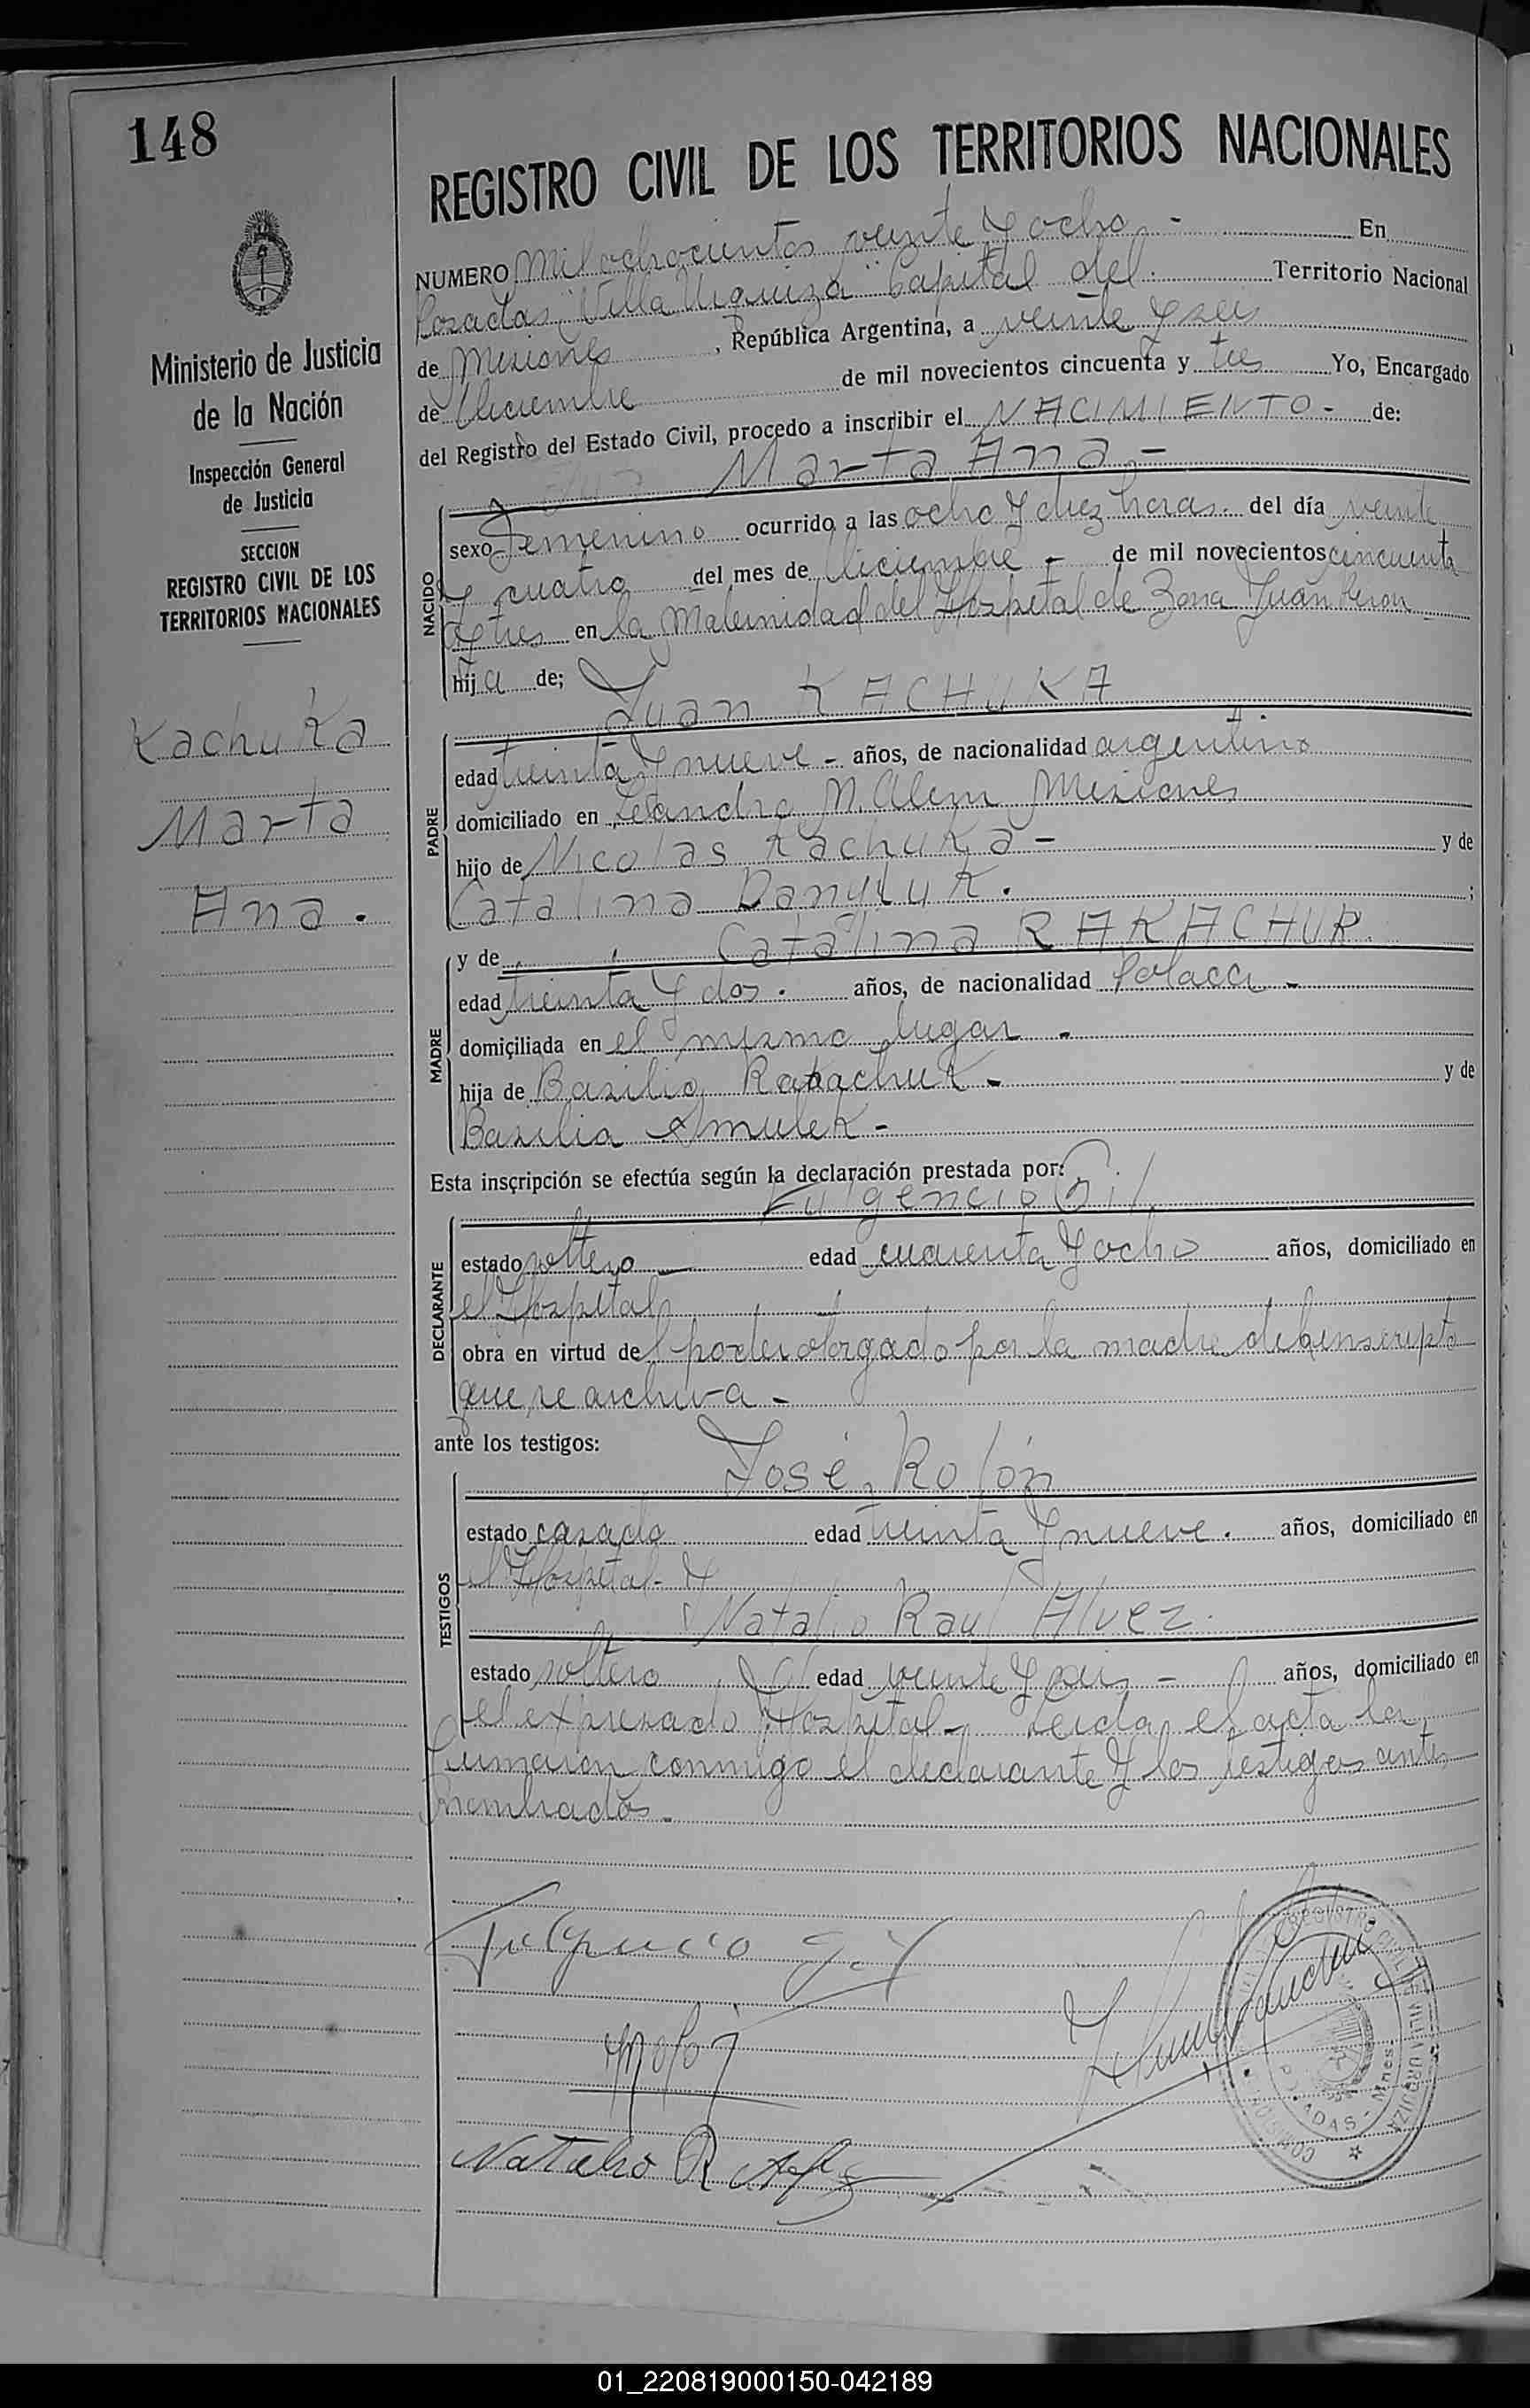 148
REGISTRO CIVIL DE LOS TERRITORIOS NACIONALES
Ministerio de Justicia
de la Nación
Inspección General
de Justicia
SECCION
REGISTRO CIVIL DE LOS
TERRITORIOS NACIONALES
Kachuka
Marta
Ana.
NUMERO Mil ochocientos veinte y ocho - En
Posadas "Villa Urquiza" Capital del Territorio Nacional
de Misiones, República Argentina, a veinte y seis
de Diciembre de mil novecientos cincuenta y tres Yo, Encargado
del Registro del Estado Civil, procedo a inscribir el NACIMIENTO - de:
Marta Ana -
NACIDO
sexo Femenino ocurrido a las ocho y diez horas. del día veinte
y cuatro del mes de Diciembre - de mil novecientos cincuenta
y tres en la Maternidad del Hospital de Zona Juan Peron
hija de;
Juan KACHUKA
PADRE
edad treinta y nueve - años, de nacionalidad argentino
domiciliado en Leandro N. Alem Misiones
hijo de Nicolas Kachuka - y de
Catalina Danyluk. ;
y de Catalina RAKACHUK.
MADRE
edad treinta y dos. años, de nacionalidad Polaca -
domiciliada en el mismo lugar -
hija de Basilio Rakachuk - y de
Basilia -
Esta inscripción se efectúa según la declaración prestada por:
Fulgencio Gil
DECLARANTE
estado soltero edad cuarenta y ocho años, domiciliado en
el Hospital
obra en virtud del poder otorgado por la madre del inscripto
que se archiva -
ante los testigos:
José Rolón
TESTIGOS
estado casado edad treinta y nueve. años, domiciliado en
el Hospital - y
Natalio Raul Alvez.
estado soltero edad veinte y seis - años, domiciliado en
el expresado Hospital - Leida el acta la
firmaron conmigo el declarante y los testigos ante
nombrados -
Fulgencio Gil
Natalio R
REGISTRO CIVIL DE VILLA URQUIZA
POSADAS - Mnes.
01_220819000150-042189